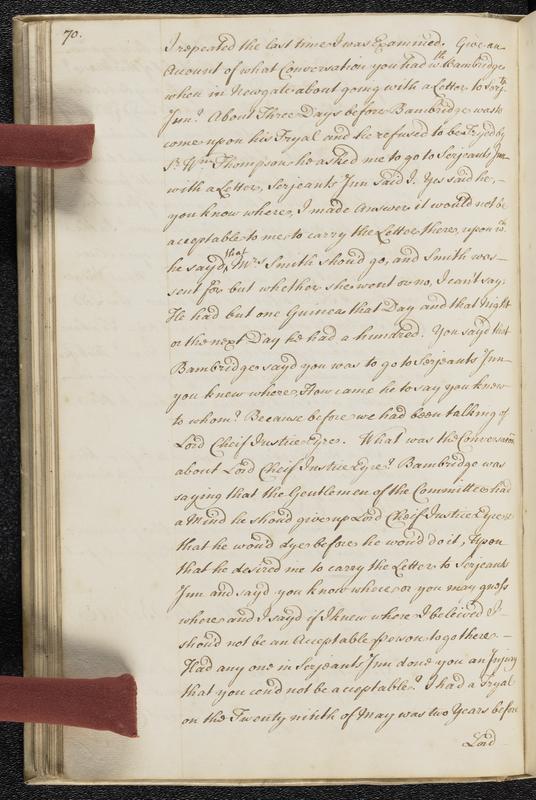 70.
I repeated the last time I was Examined. Give an
Account of what Conversation you had wth. Bambridge
when in Newgate about going with a Letter to Serjts.
Inn? About Three Days before Bambridge was to
come upon his Tryal and he refused to be Tryed by
Sr. Wm. Thompson, he asked me to go to Serjeants Inn
with a Letter, Serjeants Inn said I. Yes said he, –
you know where, I made Answer it would not be
acceptable to me to carry the Letter there, upon wch.
he sayd, that Mrs. Smith should go, and Smith was –
sent for but whether she went or no, I can't say;
He had but one Guinea that Day and that Night
or the next Day he had a hundred. You sayd that
Bambridge sayd you was to go to Serjeants Inn
you knew where, How came he to say you knew
to whom? Because before we had been talking of
Lord Cheif Justice Eyre. What was the Conversation
about Lord Cheif Justice Eyre? Bambridge was
saying that the Gentlemen of the Committee had
a Mind he should give up Lord Cheif Justice Eyre &
that he wou'd dye before he would do it, Upon
that he desired me to carry the Letter to Serjeants
Inn and sayd you know where or you may guess
where and I sayd if I knew where I beleived I
should not be an Acceptable person to go there. –
Had any one in Serjeants Inn done you an Injury
that you could not be acceptable? I had a Tryal
on the Twenty ninth of May was two Years before
Lord